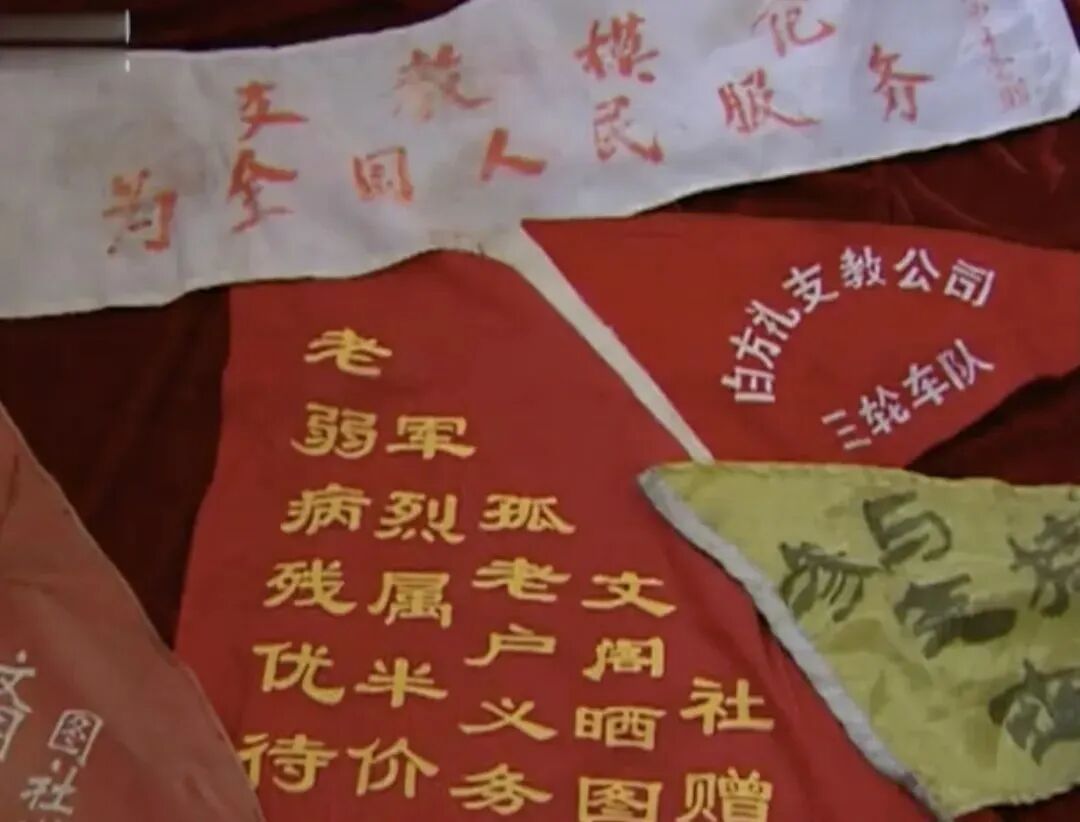 支教模
为全国人民服务
白方礼支教公司
三轮车队
老弱病残优待
军烈属半价
孤老户义务
文阁晒图
社赠
图社